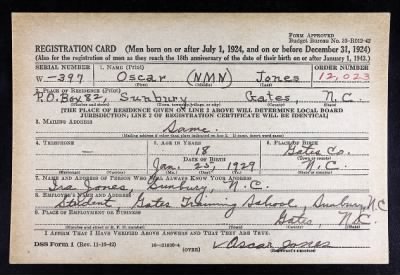 FORM APPROVED
Budget Bureau No. 33-R012-42
REGISTRATION CARD (Men born on or after July 1, 1924, and on or before December 31, 1924)
(Also for the registration of men as they reach the 18th anniversary of the date of their birth on or after January 1, 1943.)
SERIAL NUMBER 1. NAME (Print) ORDER NUMBER
W-397 Oscar (NMN) Jones 12,023
2. PLACE OF RESIDENCE (Print)
P.O. Box 82, Sunbury Gates, N.C.
[THE PLACE OF RESIDENCE GIVEN ON LINE 2 ABOVE WILL DETERMINE LOCAL BOARD
JURISDICTION; LINE 2 OF REGISTRATION CERTIFICATE WILL BE IDENTICAL]
3. MAILING ADDRESS
Same.
(Mailing address if other than place indicated on line 2. If same, insert word same)
4. TELEPHONE 5. AGE IN YEARS 6. PLACE OF BIRTH
18 Gates Co.
DATE OF BIRTH (Town or county)
Jan. 25, 1929 N.C.
7. NAME AND ADDRESS OF PERSON WHO WILL ALWAYS KNOW YOUR ADDRESS
Ira Jones, Sunbury, N.C.
8. EMPLOYER'S NAME AND ADDRESS
Student, Gates Training School, Sunbury, N.C.
9. PLACE OF EMPLOYMENT OR BUSINESS
Gates, N.C.
I AFFIRM THAT I HAVE VERIFIED ABOVE ANSWERS AND THAT THEY ARE TRUE.
DSS Form 1 (Rev. 11-16-42) (OVER) Oscar Jones